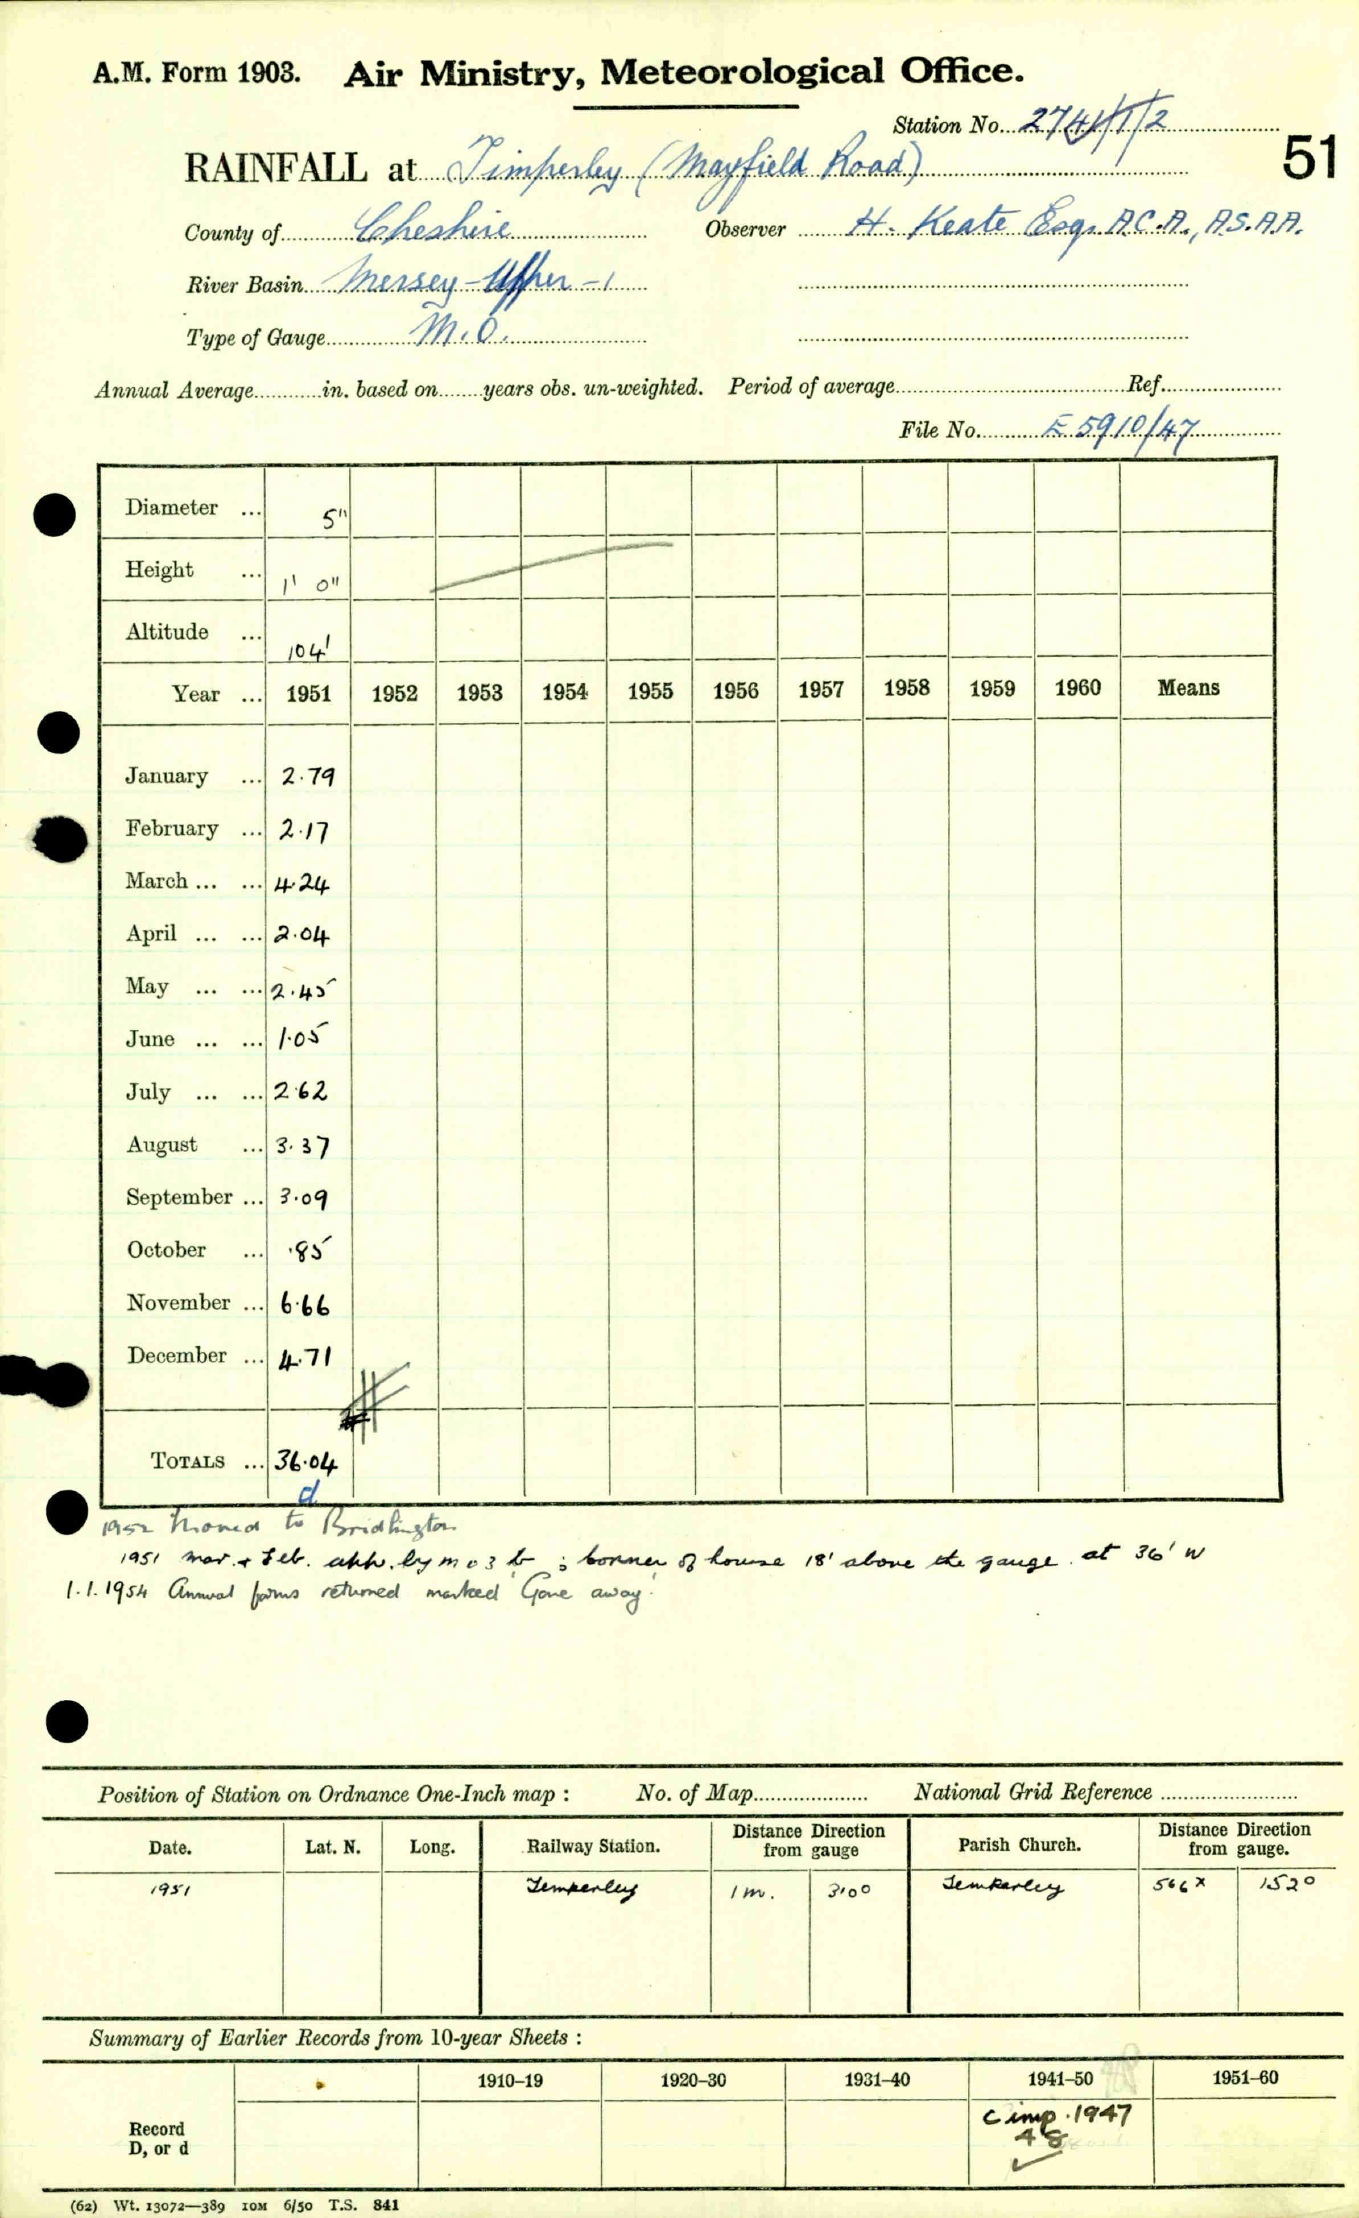 A.M. Form 1903. Air Ministry, Meteorological Office.
Station No. 2741/1/2
51
RAINFALL at Timperley (Mayfield Road)
County of Cheshire Observer H. Keate Esq. A.C.A., A.S.A.A.
River Basin Mersey-Upper-1
Type of Gauge M.O.
Annual Average in. based on years obs. un-weighted. Period of average Ref.
File No. E 5910/47
Diameter ... 5"
Height ... 1' 0"
Altitude ... 104'
Year ... 1951 1952 1953 1954 1955 1956 1957 1958 1959 1960 Means
January ... 2.79
February ... 2.17
March ... ... 4.24
April ... ... 2.04
May ... ... 2.45
June ... ... 1.05
July ... ... 2.62
August ... 3.37
September ... 3.09
October ... .85
November ... 6.66
December ... 4.71
TOTALS ... 36.04
d
1952 Moved to Bridlington
1951 Mar. + Feb. app. by m o 3 b ; corner of house 18' above the gauge at 36' W
1.1.1954 Annual forms returned marked 'Gone away'
Position of Station on Ordnance One-Inch map : No. of Map National Grid Reference
Date. Lat. N. Long. Railway Station. Distance Direction from gauge Parish Church. Distance Direction from gauge.
1951 Timperley 1 m. 310° Timperley 566x 152°
Summary of Earlier Records from 10-year Sheets :
1910-19 1920-30 1931-40 1941-50 1951-60
Record
D, or d
C imp. 1947
48
(62) Wt. 13072—389 10M 6/50 T.S. 841